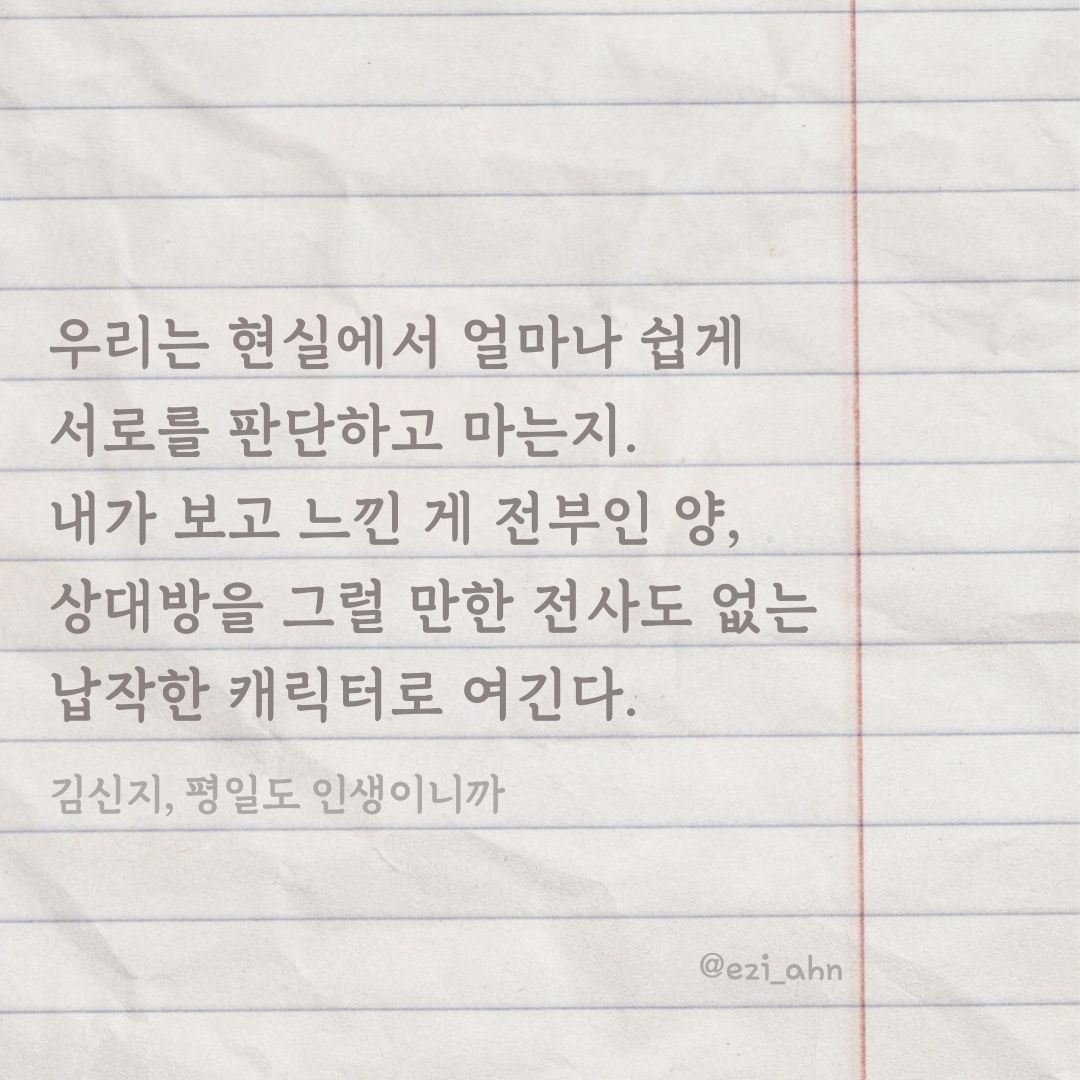 우리는 현실에서 얼마나 쉽게
서로를 판단하고 마는지.
내가 보고 느낀 게 전부인 양,
상대방을 그럴 만한 전사도 없는
납작한 캐릭터로 여긴다.
김신지, 평일도 인생이니까
@ezi_ahn